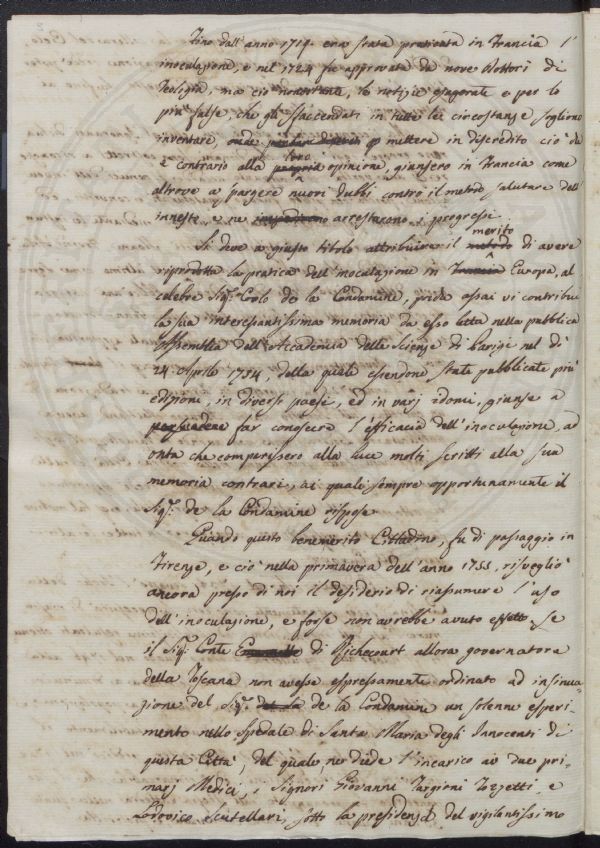 Fino dall'anno 1714. era stata praticata in Francia l'
inoculazione, e nel 1724 fu approvata da nove Dottori di
Teologia, ma ciò nonostante, le notizie esagerate e per lo
più false, che gli sfaccendati in tutte le circostanze sogliono
inventare, onde per mettere in discredito ciò che
è contrario alla propria loro opinione, giunsero in Francia come
altrove a spargere nuovi dubbi contro il metodo salutare dell'
innesto, e ne impedirono arrestarono i progressi.
Si deve a giusto titolo attribuire il metodo merito di avere
riprodotta la pratica dell'inoculazione in Francia Europa, al
celebre Sig.r Carlo de la Condamine, poichè assai vi contribuì
la sua interessantissima memoria da esso letta nella pubblica
Assemblea dell'Accademia delle Scienze di Parigi nel dì
24. Aprile 1754, della quale essendone state pubblicate più
edizioni, in diversi paesi, ed in varj idomi, giunse a
persuadere far conoscere l'efficacia dell'inoculazione, ad
onta che comparissero alla luce molti scritti alla sua
memoria contrari, ai quali sempre opportunamente il
Sig.r de la Condamine rispose.
Quando questo benemerito Cittadino, fu di passaggio in
Firenze, e ciò nella primavera dell'anno 1755, risvegliò
ancora presso di noi il desiderio di riassumere l'uso
dell'inoculazione, e forse non avrebbe avuto effetto, se
il Sig.r Conte di Richecourt allora governatore
della Toscana non avesse espressamente ordinato ad insinua-
zione del Sig.r de la de la Condamine un solenne esperi-
mento nello Spedale di Santa Maria degli Innocenti di
questa Città, del quale, ne diede l'incarico ai due pri-
marj Medici, i Signori Giovanni Targioni Tozzetti, e
Lodovico Scutellari, sotto la presidenza del vigilantissimo